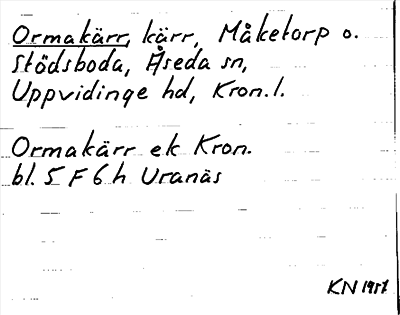 Ormakärr, kärr, Måketorp o.
Stödsboda, Åseda sn,
Uppvidinge hd, Kron. l.
Ormakärr ek Kron.
bl. 5 F 6 h Uranäs
KN